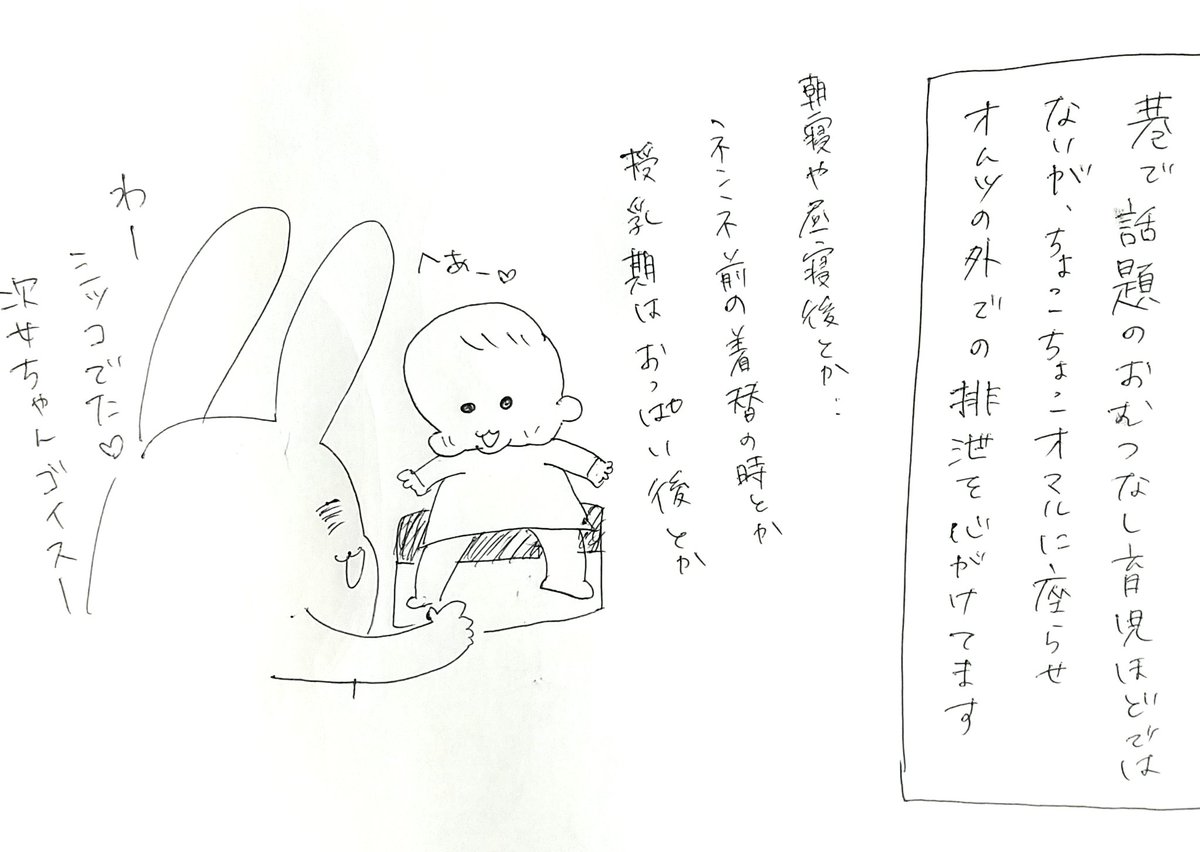 巷で話題のおむつなし育児ほどでは
ないが、ちょこちょこオマルに座らせ
オムツの外での排泄を心がけてます
朝寝や昼寝後とか…
ネンネ前の着替の時とか
授乳期はおっぱい後とか
へあー♡
わー
シッコでた♡
次女ちゃんゴイスー